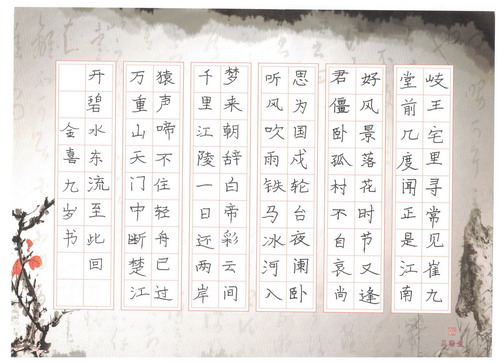 岐王宅里寻常见崔九
堂前几度闻正是江南
好风景落花时节又逢
君僵卧孤村不自哀尚
思为国戍轮台夜阑卧
听风吹雨铁马冰河入
梦来朝辞白帝彩云间
千里江陵一日还两岸
猿声啼不住轻舟已过
万重山天门中断楚江
开碧水东流至此回
金喜九岁书